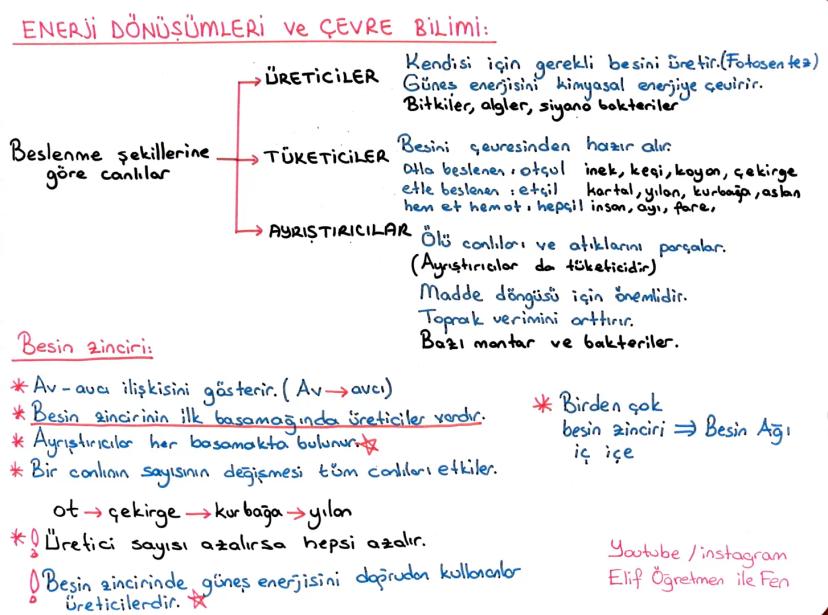 ENERJİ DÖNÜŞÜMLERİ ve ÇEVRE BİLİMİ:
Beslenme şekillerine
göre canlılar
→ ÜRETİCİLER
Kendisi için gerekli besini üretir.(Fotosentez)
Güneş enerjisini kimyasal enerjiye çevirir.
Bitkiler, algler, siyano bakteriler
→ TÜKETİCİLER
Besini çevresinden hazır alır.
Otla beslenen : otçul inek, keçi, koyon, çekirge
etle beslenen : etçil kartal, yılan, kurbağa, aslan
hem et hem ot : hepçil insan, ayı, fare,
→ AYRIŞTIRICILAR
Ölü canlıları ve atıklarını parçalar.
(Ayrıştırıcılar da tüketicidir)
Madde döngüsü için önemlidir.
Toprak verimini arttırır.
Bazı mantar ve bakteriler.
Besin zinciri:
* Av-avcı ilişkisini gösterir. (Av → avcı)
* Besin zincirinin ilk basamağında üreticiler vardır.
* Ayrıştırıcılar her basamakta bulunur.
* Bir canlının sayısının değişmesi tüm canlıları etkiler.
ot → çekirge → kurbağa → yılan
* ! Üretici sayısı azalırsa hepsi azalır.
! Besin zincirinde güneş enerjisini doğrudan kullananlar
üreticilerdir.
* Birden çok
besin zinciri ⇒ Besin Ağı
iç içe
Youtube / instagram
Elif Öğretmen ile Fen